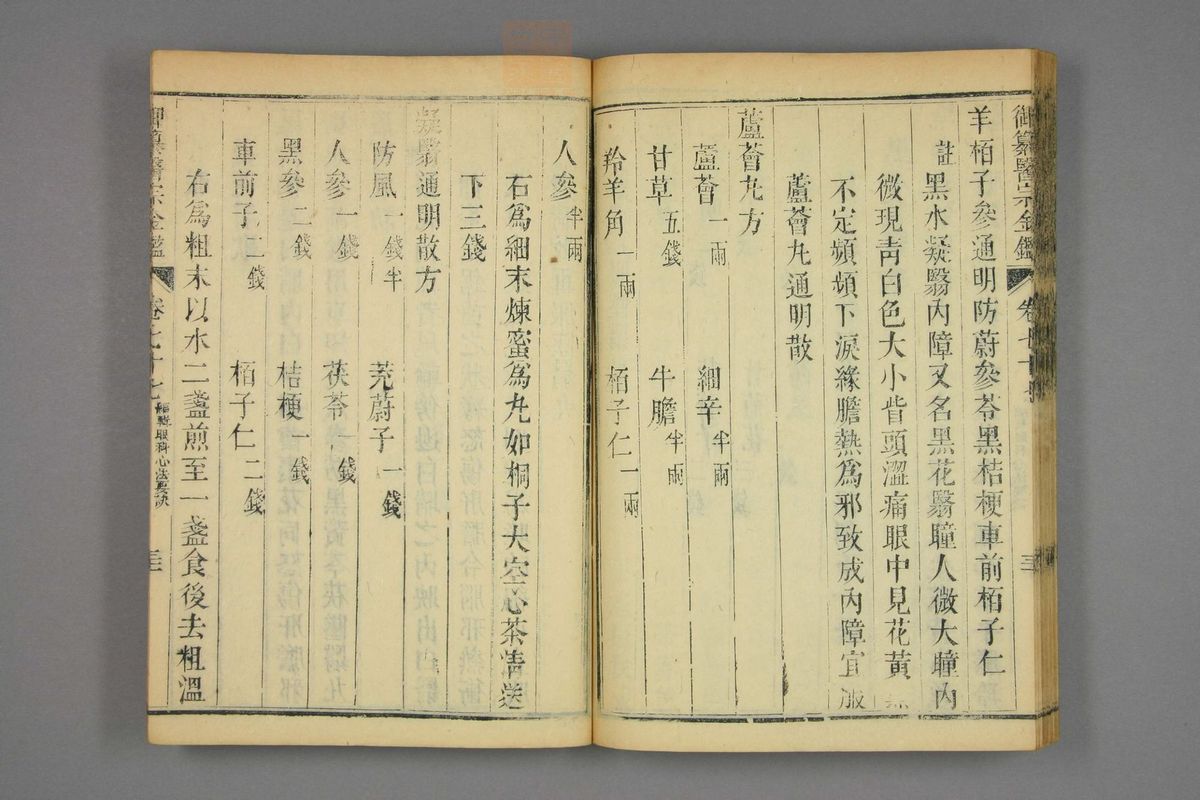 御纂醫宗金鑑 卷七十七 三十
羊栢子參通明防蔚參苓黑桔梗車前栢子仁
註 黑水凝翳內障又名黑花翳瞳人微大瞳內
微現青白色大小眥頭澀痛眼中見花黃黑
不定頻頻下淚緣膽熱爲邪致成內障宜服
蘆薈丸通明散
蘆薈丸方
蘆薈一兩 細辛半兩
甘草五錢 牛膽半兩
羚羊角一兩 栢子仁一兩
人參半兩
右爲細末煉蜜爲丸如桐子大空心茶清送
下三錢
凝翳通明散方
防風一錢半 茺蔚子一錢
人參一錢 茯苓一錢
黑參二錢 桔梗一錢
車前子二錢 栢子仁二錢
右爲粗末以水二盞煎至一盞食後去粗溫
御纂醫宗金鑑 卷七十七 編輯眼科心法要訣 三十